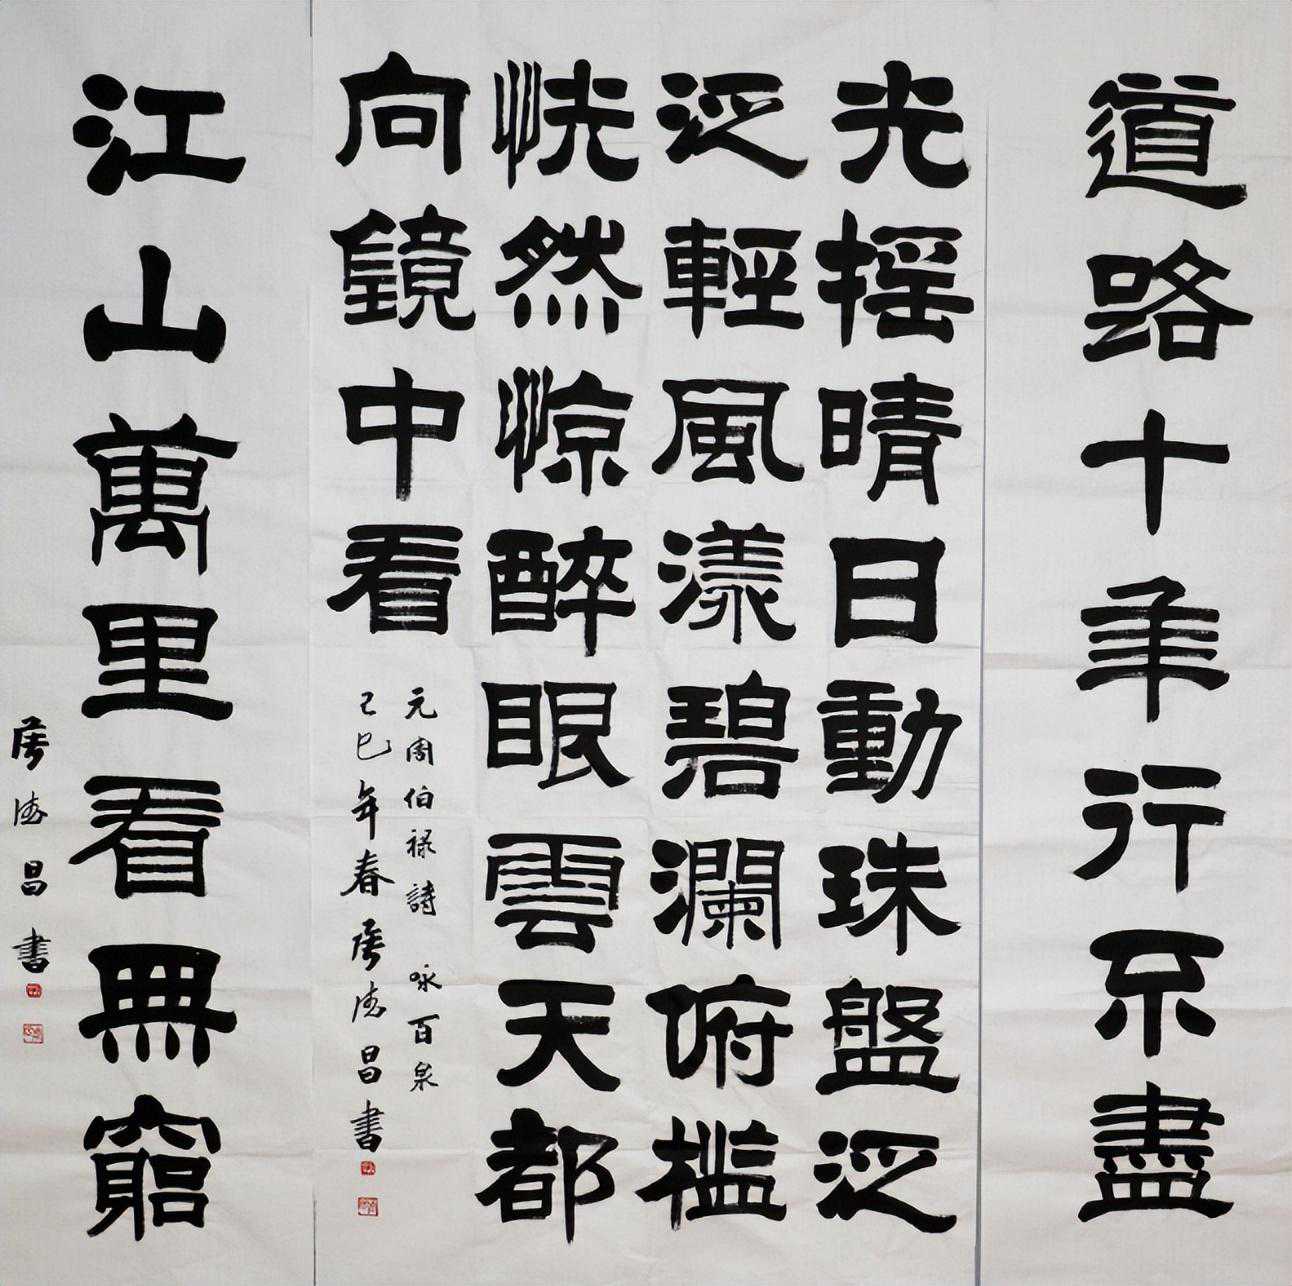 道路十年行不盡
光摇晴日動珠盤泛
泛輕風漾碧瀾俯檻
恍然惊醉眼雲天都
向鏡中看
元周伯禄詩 咏百泉
巳年春 昌書
江山萬里看無窮
昌書